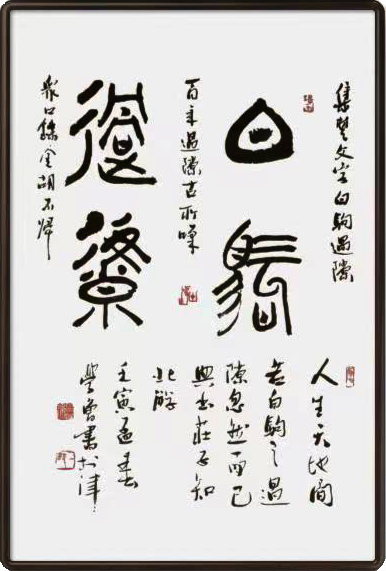 集楚文字白駒過隙
白駒
百年過隙古所嘆
過隙
衆口鑠金胡不歸
人生天地間
若白駒之過
隙忽然而已
典出莊子知
北游
壬寅孟春
學曾書於津